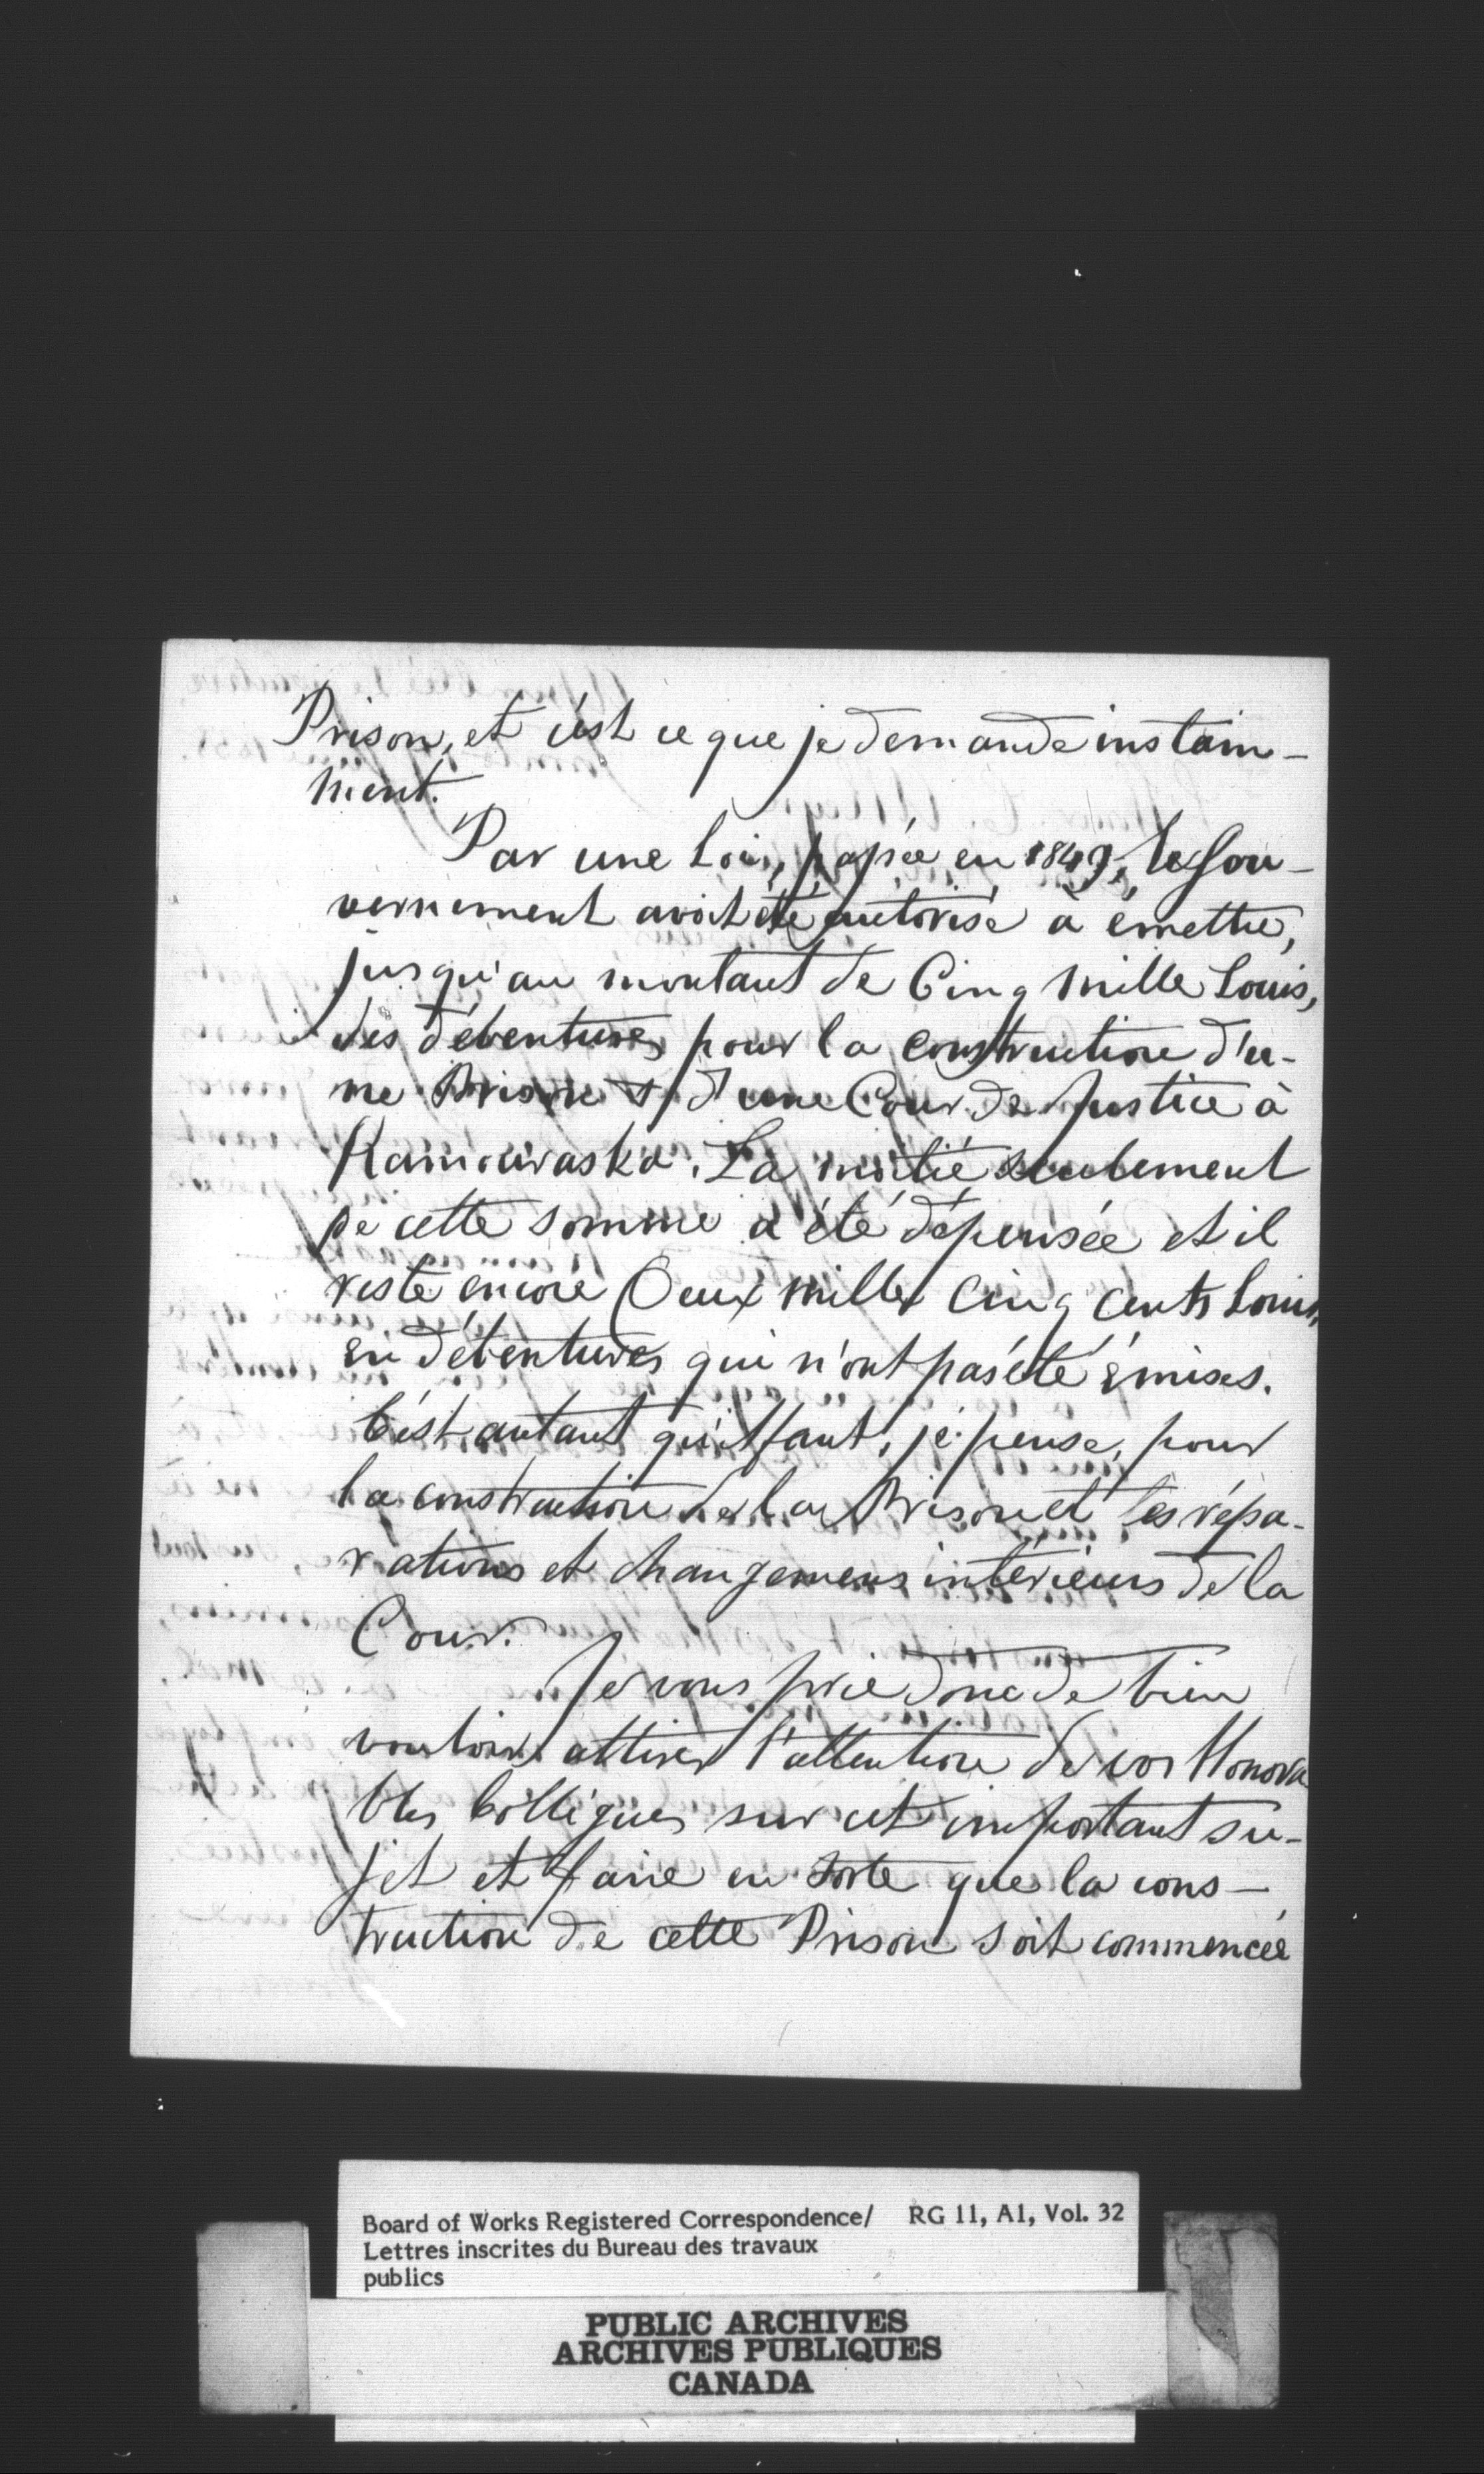 Prison, et c'est ce que je demande instam-
ment.
Par une Loi, passée en 1849, le Gou-
vernement avait été autorisé à émettre,
jusqu'au montant de Cinq mille Louis,
des débentures pour la construction d'u-
ne Prison & d'une Cour de Justice à
Kamouraska. La moitié seulement
de cette somme a été dépensée et il
reste encore Deux mille Cinq cents Louis,
en débentures qui n'ont pas été émises.
C'est autant qu'il faut, je pense, pour
la construction de la Prison et les répa-
rations et changemens intérieurs de la
Cour.
Je vous prie donc de bien
vouloir attirer l'attention de vos Honora
bles Collègues sur cet important su-
jet et faire en sorte que la cons-
truction de cette Prison soit commencée
Board of Works Registered Correspondence/ RG 11, A1, Vol. 32
Lettres inscrites du Bureau des travaux
publics
PUBLIC ARCHIVES
ARCHIVES PUBLIQUES
CANADA